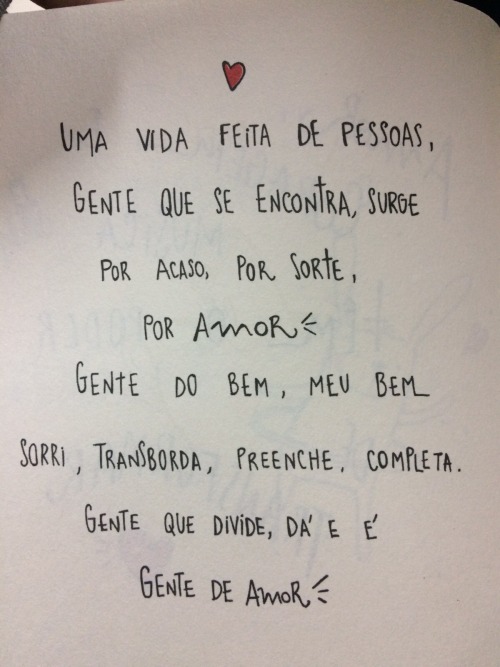 UMA VIDA FEITA DE PESSOAS,
GENTE QUE SE ENCONTRA, SURGE
POR ACASO, POR SORTE,
POR AMOR
GENTE DO BEM, MEU BEM
SORRI, TRANSBORDA, PREENCHE, COMPLETA.
GENTE QUE DIVIDE, DÁ E É
GENTE DE AMOR